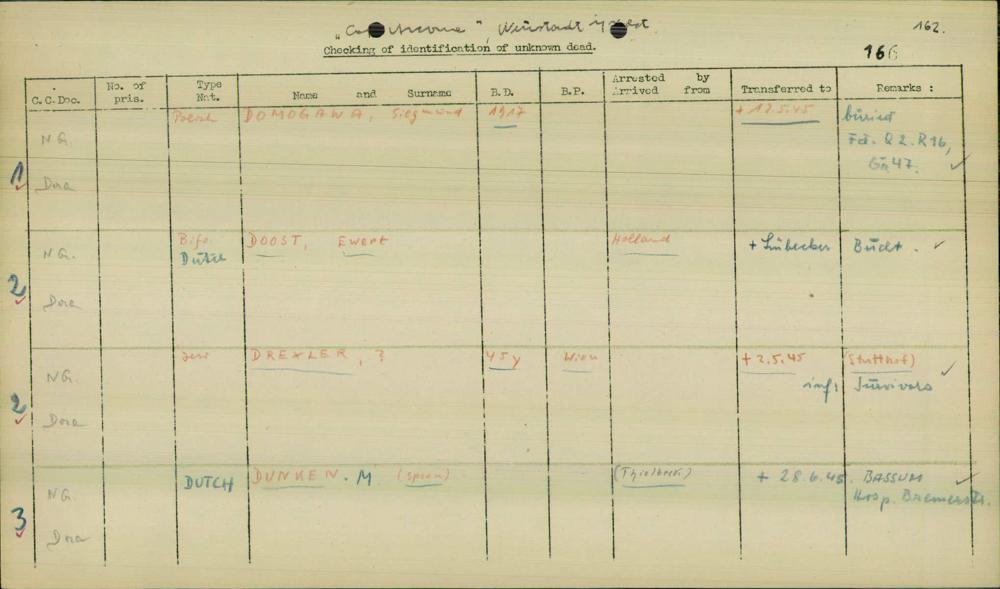 "Cap Arcona", Neustadt i/Holst.
162.
Checking of identification of unknown dead.
166
C.C.Doc. No. of pris. Type Nat. Name and Surname B.D. B.P. Arrested by Arrived from Transferred to Remarks :
1 NG. Dora Polish DOMOGAWA, Siegmund 1917 + 12.5.45 buried
Fd. Q 2. R 16,
Gr. 47. ✓
2 NG. Dora Bifo. Dutch DOOST, Ewert Holland + Lübecker Bucht. ✓
2 NG. Dora Jew DREXLER, ? 45y Wien + 2.5.45 (Stutthof) ✓
inf: Survivors
3 NG. Dora DUTCH DUNKEN. M. (Thielbeck) + 28.6.45. BASSUM ✓
Hosp. Bremerstr.